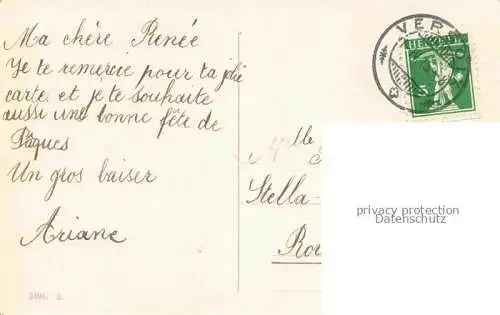 Ma chère Renée
Je te remercie pour ta jolie
carte et je te souhaite
aussi une bonne fête de
Pâques
Un gros baiser
Ariane
Mlle
Stella
VERSOI
HELVETIA
5
privacy protection
Datenschutz